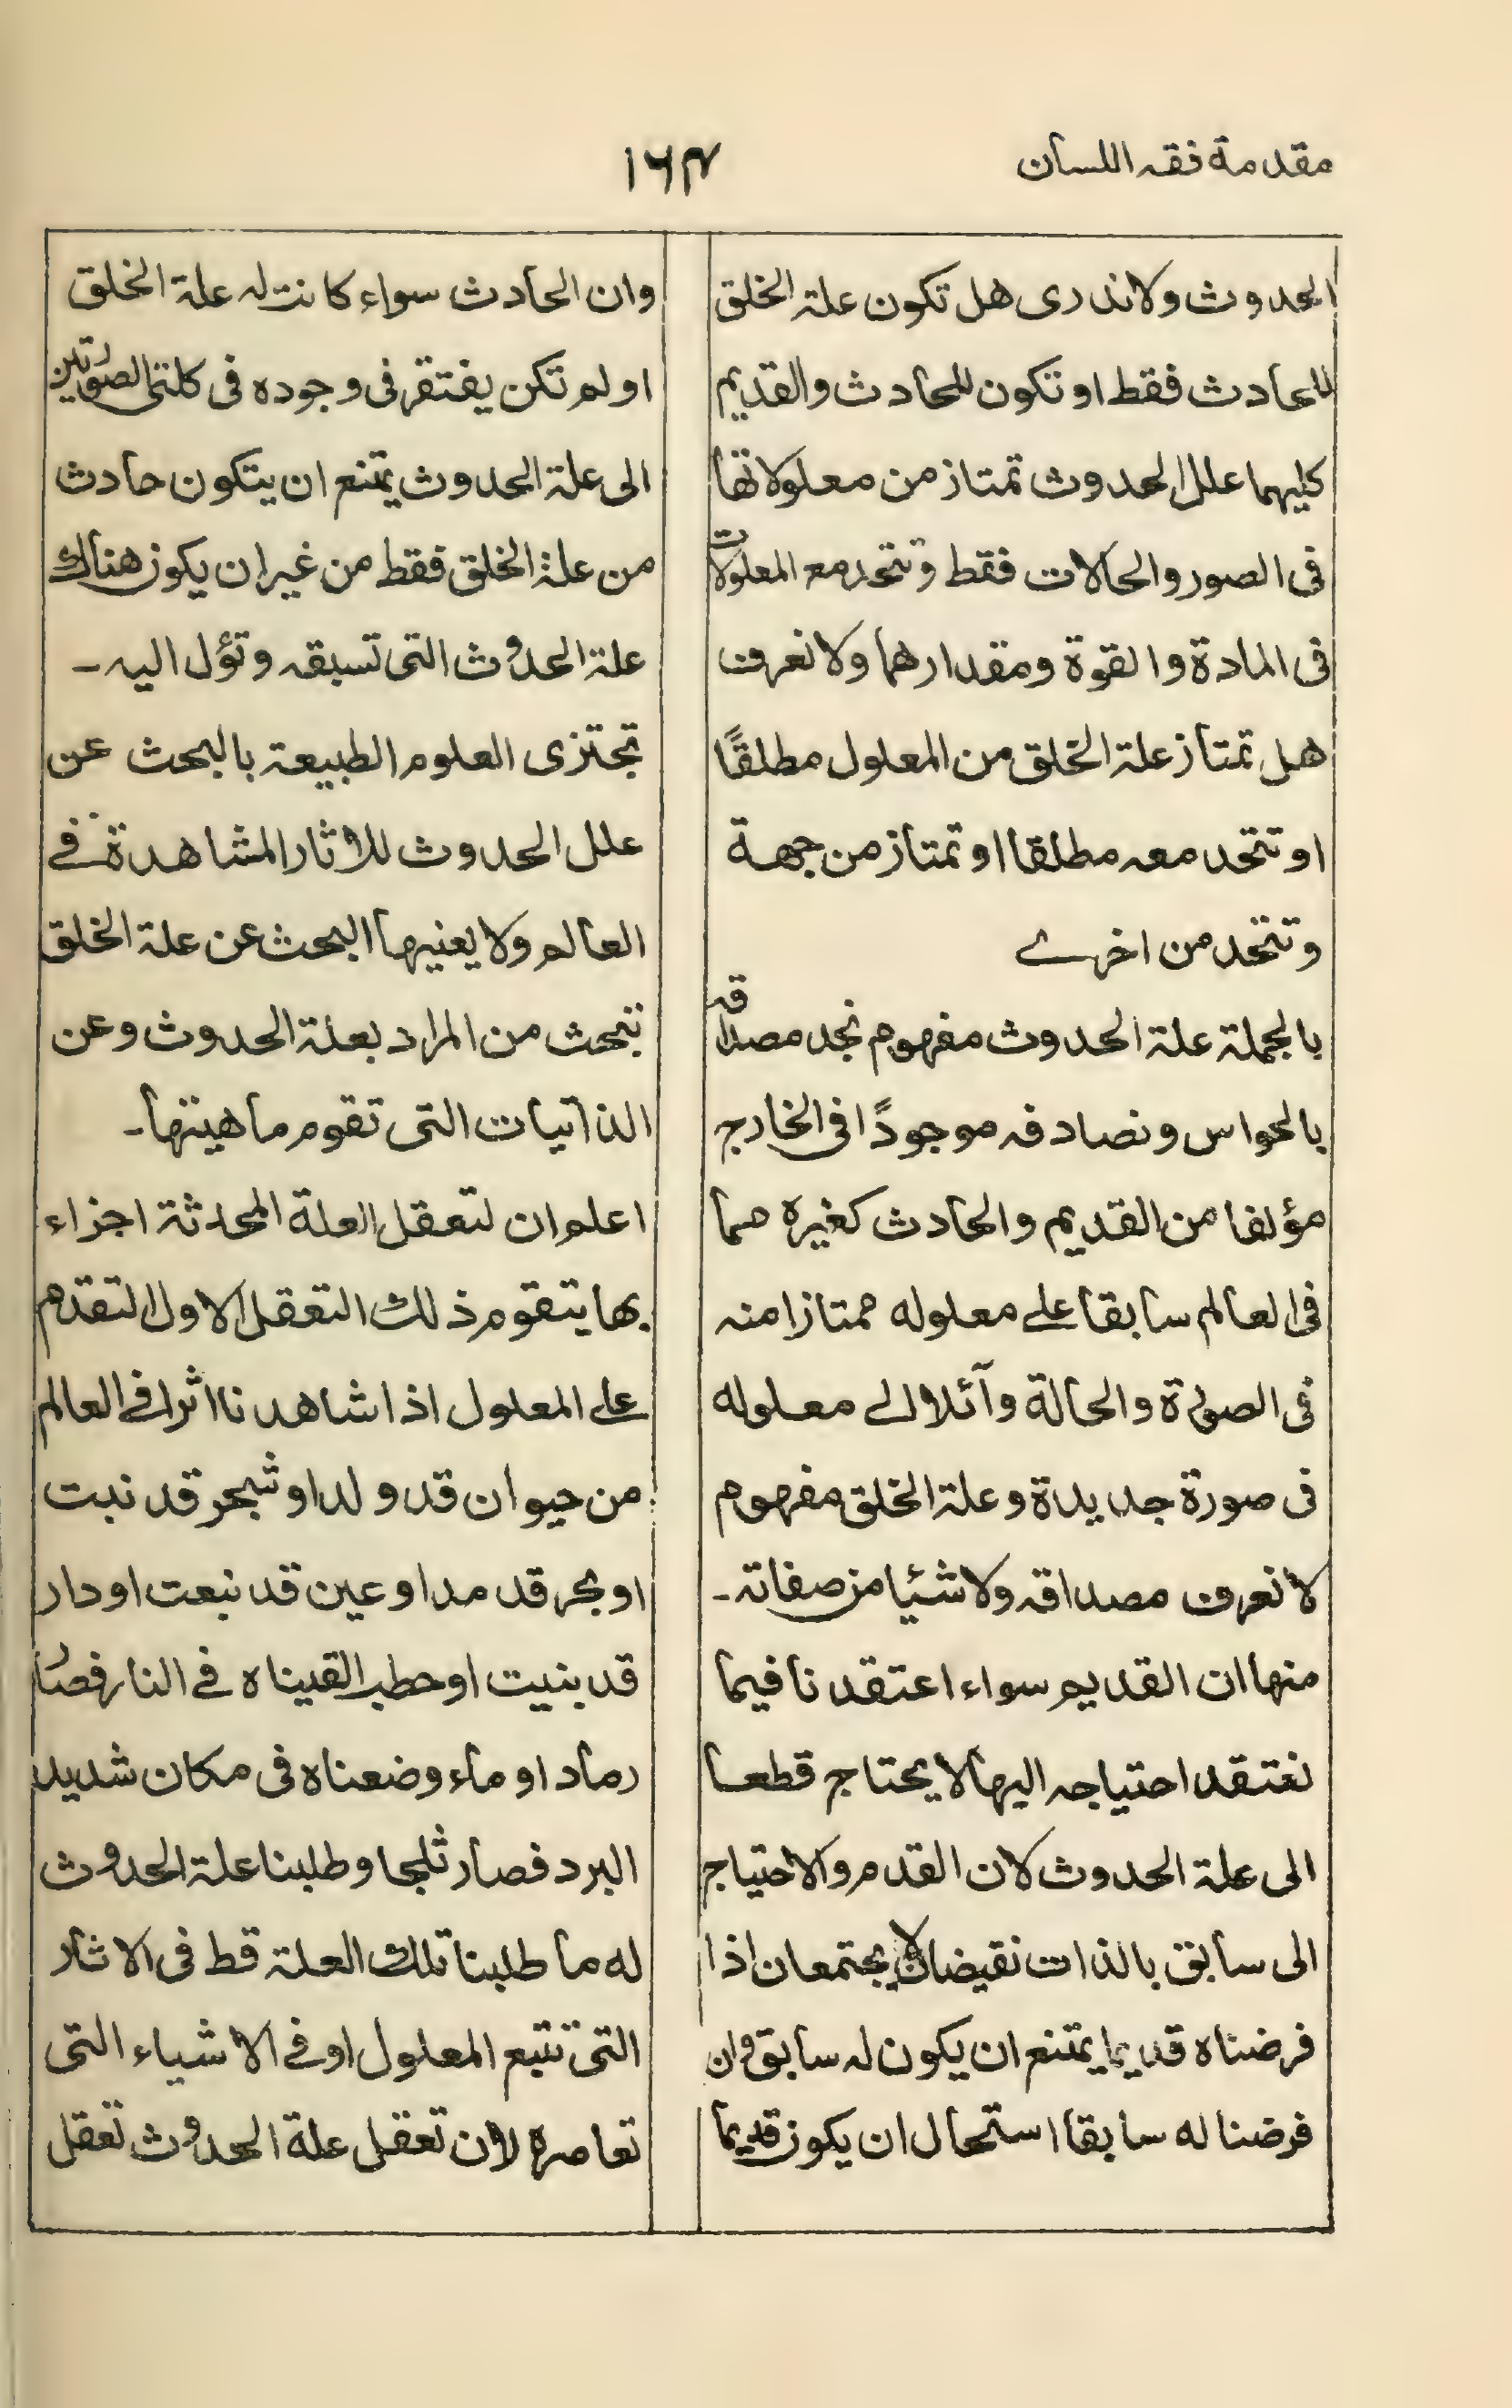 مقدمة فقه اللسان
۱۶۴
الحدوث ولا ندرى هل تكون علة الخلق
للحادث فقط او تكون للحادث والقديم
كليهما علل الحدوث تمتاز من معلولاتها
فى الصور والحالات فقط وتتحد مع المعلولات
فى المادة والقوة ومقدارهما ولا نعرف
هل تمتاز علة الخلق من المعلول مطلقًا
او تتحد معه مطلقا او تمتاز من جهة
وتتحد من اخرے
بالجملة علة الحدوث مفهوم نجد مصداقه
بالحواس ونصادفه موجودًا فى الخارج
مؤلفا من القديم والحادث كغيره مما
فى العالم سابقا علے معلوله ممتازا منه
فى الصورة والحالة وآئلا الے معلوله
فى صورة جديدة وعلة الخلق مفهوم
لا نعرف مصداقه ولا شئيا من صفاته ۔
منها ان القديم سواء اعتقدنا فيما
نعتقد احتياجه اليها لا يحتاج قطعا
الى علة الحدوث لان القدم والاحتياج
الى سابق بالذات نقيضان لا يجتمعان اذا
فرضناه قديما يمتنع ان يكون له سابق وان
فرضنا له سابقا استحال ان يكون قديما
وان الحادث سواء كانت له علة الخلق
او لم تكن يفتقر فى وجوده فى كلتى الصورتين
الى علة الحدوث يمتنع ان يتكون حادث
من علة الخلق فقط من غير ان يكون هناك
علة الحدوث التى تسبقه وتؤل اليه ۔
تجتزى العلوم الطبيعة بالبحث عن
علل الحدوث للاثار المشاهدة فے
العالم ولا يعنيها البحث عن علة الخلق
نبحث من المراد بعلة الحدوث وعن
الذاتيات التى تقوم ماهيتها۔
اعلم ان لتعقل العلة المحدثة اجزاء
بها يتقوم ذلك التعقل الاول التقدم
علے المعلول اذا شاهدنا اثرا فے العالم
من حيوان قد ولد او شجر قد نبت
او بحر قد مد او عين قد نبعت او دار
قد بنيت او حطب القيناه فے النار فصار
رماد او ماء وضعناه فى مكان شديد
البرد فصار ثلجا وطلبنا علة الحدوث
له ما طلبنا تلك العلة قط فى الاثار
التى تتبع المعلول او فے الاشياء التى
تعاصره لان تعقل علة الحدوث تعقل